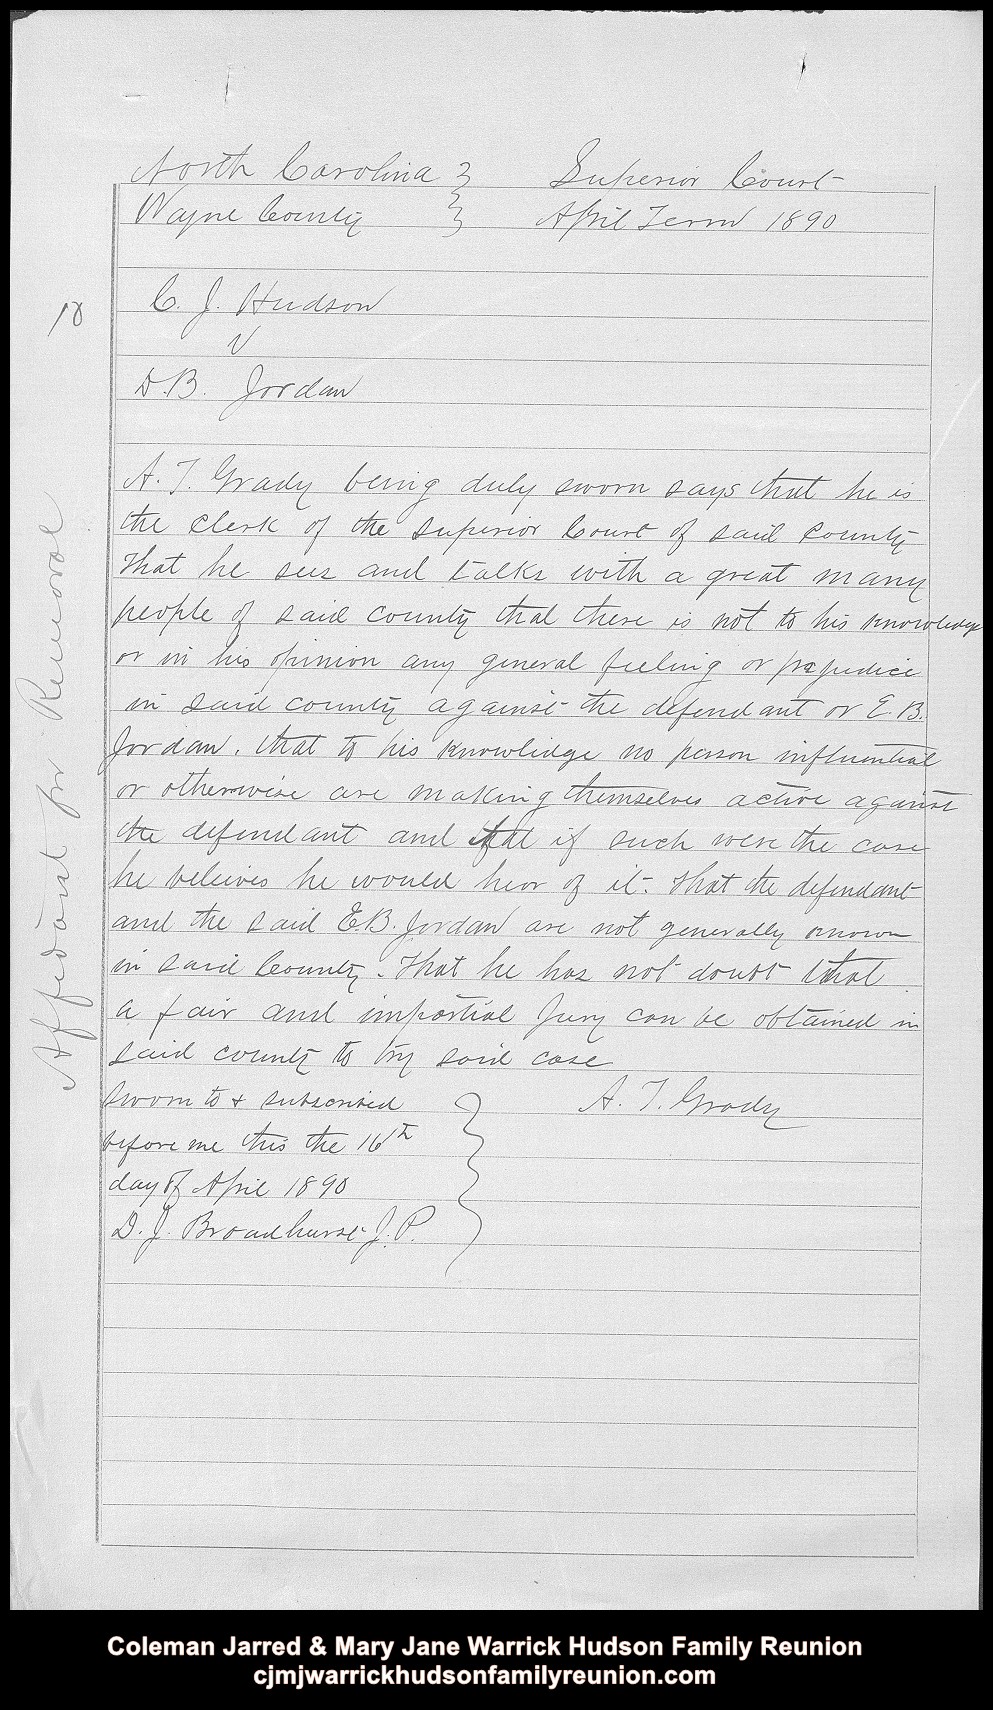 North Carolina } Superior Court
Wayne County } April Term 1890
C. J. Hudson
v
D.B. Jordan
18
Affidavit for Removal
A. T. Grady being duly sworn says that he is
the clerk of the Superior Court of said County
that he sees and talks with a great many
people of said county that there is not to his knowledge
or in his opinion any general feeling or prejudice
in said county against the defendant or E. B.
Jordan. that to his knowledge no person influential
or otherwise are making themselves active against
the defendant and that if such were the case
he beleives he would hear of it. That the defendant
and the said E.B. Jordan are not generally known
in said County. That he has not doubt that
a fair and impartial Jury can be obtained in
said county to try said case
Sworn to & subscribed } A. T. Grady
before me this the 16th
day of April 1890
D. J. Broadhurst J. P.
Coleman Jarred & Mary Jane Warrick Hudson Family Reunion
cjmjwarrickhudsonfamilyreunion.com